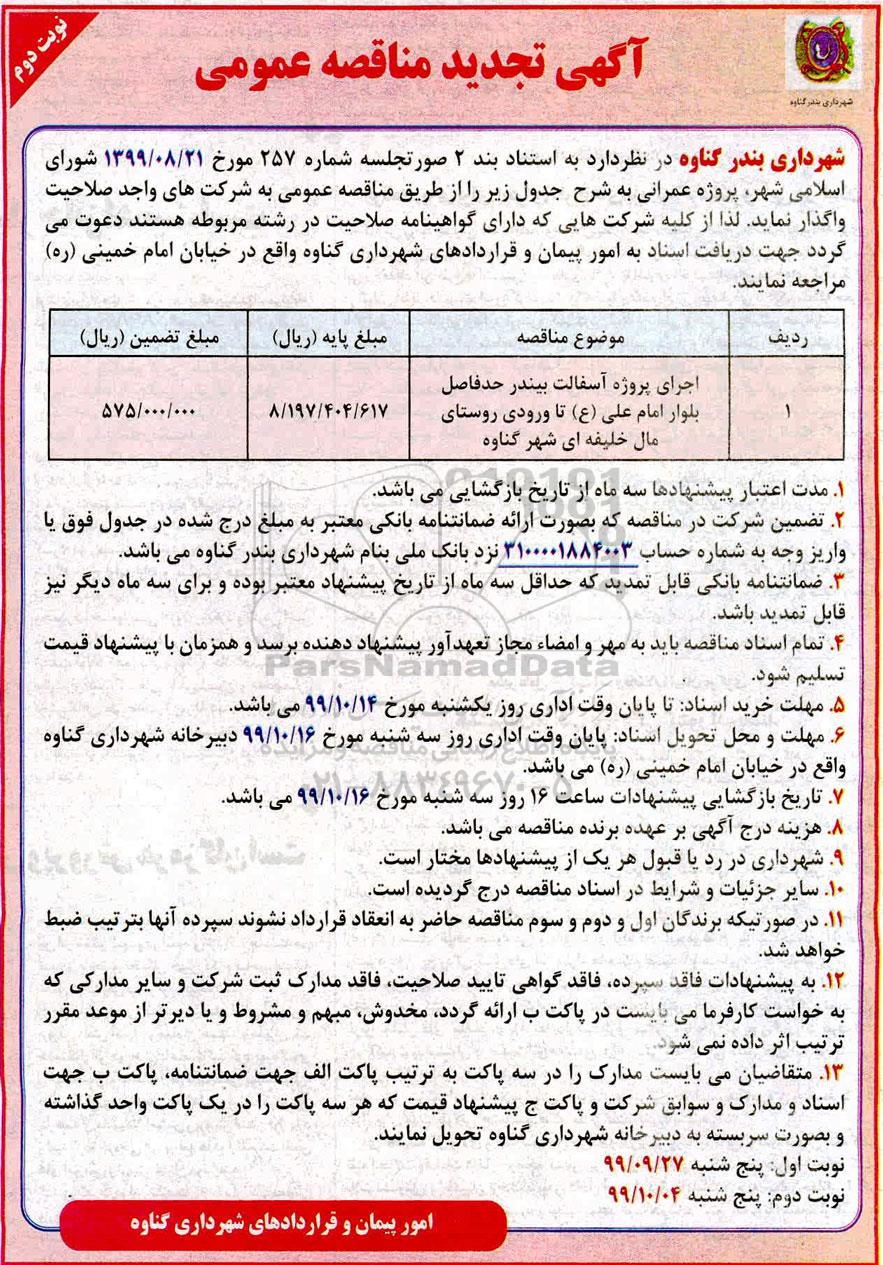 نوبت دوم
آگهی تجدید مناقصه عمومی
شهرداری بندرگناوه
شهرداری بندر گناوه در نظردارد به استناد بند ۲ صورتجلسه شماره ۲۵۷ مورخ ۱۳۹۹/۰۸/۲۱ شورای
اسلامی شهر، پروژه عمرانی به شرح جدول زیر را از طریق مناقصه عمومی به شرکت های واجد صلاحیت
واگذار نماید. لذا از کلیه شرکت هایی که دارای گواهینامه صلاحیت در رشته مربوطه هستند دعوت می
گردد جهت دریافت اسناد به امور پیمان و قراردادهای شهرداری گناوه واقع در خیابان امام خمینی (ره)
مراجعه نمایند.
ردیف موضوع مناقصه مبلغ پایه (ریال) مبلغ تضمین (ریال)
اجرای پروژه آسفالت بیندر حدفاصل
۱ بلوار امام علی (ع) تا ورودی روستای ۸/۱۹۷/۴۰۴/۶۱۷ ۵۷۵/۰۰۰/۰۰۰
مال خلیفه ای شهر گناوه
۱. مدت اعتبار پیشنهادها سه ماه از تاریخ بازگشایی می باشد.
۲. تضمین شرکت در مناقصه که بصورت ارائه ضمانتنامه بانکی معتبر به مبلغ درج شده در جدول فوق یا
واریز وجه به شماره حساب ۳۱۰۰۰۰۱۸۸۴۰۰۳ نزد بانک ملی بنام شهرداری بندر گناوه می باشد.
۳. ضمانتنامه بانکی قابل تمدید که حداقل سه ماه از تاریخ پیشنهاد معتبر بوده و برای سه ماه دیگر نیز
قابل تمدید باشد.
۴. تمام اسناد مناقصه باید به مهر و امضاء مجاز تعهدآور پیشنهاد دهنده برسد و همزمان با پیشنهاد قیمت
تسلیم شود.
۵. مهلت خرید اسناد: تا پایان وقت اداری روز یکشنبه مورخ ۹۹/۱۰/۱۴ می باشد.
۶. مهلت و محل تحویل اسناد: پایان وقت اداری روز سه شنبه مورخ ۹۹/۱۰/۱۶ دبیرخانه شهرداری گناوه
واقع در خیابان امام خمینی (ره) می باشد.
۷. تاریخ بازگشایی پیشنهادات ساعت ۱۶ روز سه شنبه مورخ ۹۹/۱۰/۱۶ می باشد.
۸. هزینه درج آگهی بر عهده برنده مناقصه می باشد.
۹. شهرداری در رد یا قبول هر یک از پیشنهادها مختار است.
۱۰. سایر جزئیات و شرایط در اسناد مناقصه درج گردیده است.
۱۱. در صورتیکه برندگان اول و دوم و سوم مناقصه حاضر به انعقاد قرارداد نشوند سپرده آنها بترتیب ضبط
خواهد شد.
۱۲. به پیشنهادات فاقد سپرده، فاقد گواهی تایید صلاحیت، فاقد مدارک ثبت شرکت و سایر مدارکی که
به خواست کارفرما می بایست در پاکت ب ارائه گردد، مخدوش، مبهم و مشروط و یا دیرتر از موعد مقرر
ترتیب اثر داده نمی شود.
۱۳. متقاضیان می بایست مدارک را در سه پاکت به ترتیب پاکت الف جهت ضمانتنامه، پاکت ب جهت
اسناد و مدارک و سوابق شرکت و پاکت ج پیشنهاد قیمت که هر سه پاکت را در یک پاکت واحد گذاشته
و بصورت سربسته به دبیرخانه شهرداری گناوه تحویل نمایند.
نوبت اول: پنج شنبه ۹۹/۰۹/۲۷
نوبت دوم: پنج شنبه ۹۹/۱۰/۰۴
امور پیمان و قراردادهای شهرداری گناوه
ParsNamadData